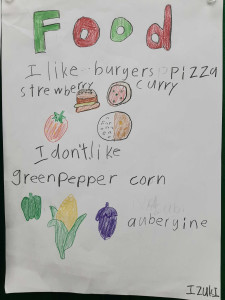 Food
I like burgers pizza
strewberry curry
I don't like
greenpepper corn
aubergine
IZUKI